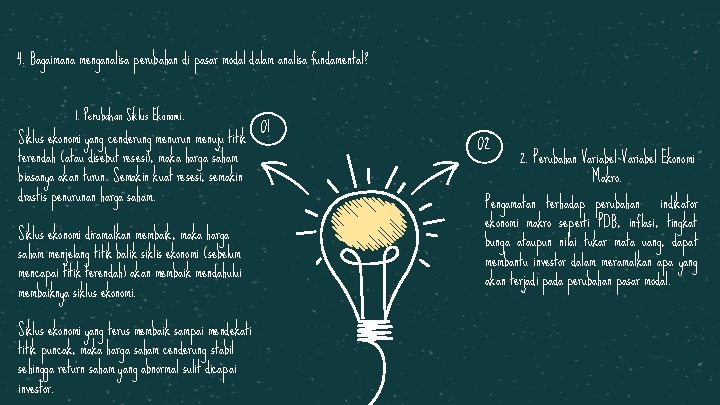 4. Bagaimana menganalisa perubahan di pasar modal dalam analisa fundamental?
1. Perubahan Siklus Ekonomi.
01
Siklus ekonomi yang cenderung menurun menuju titik
terendah (atau disebut resesi), maka harga saham
biasanya akan turun. Semakin kuat resesi, semakin
drastis penurunan harga saham.
Siklus ekonomi diramalkan membaik, maka harga
saham menjelang titik balik siklis ekonomi (sebelum
mencapai titik terendah) akan membaik mendahului
membaiknya siklus ekonomi.
Siklus ekonomi yang terus membaik sampai mendekati
titik puncak, maka harga saham cenderung stabil
sehingga return saham yang abnormal sulit dicapai
investor.
02
2. Perubahan Variabel-Variabel Ekonomi
Makro.
Pengamatan terhadap perubahan indikator
ekonomi makro seperti PDB, inflasi, tingkat
bunga ataupun nilai tukar mata uang, dapat
membantu investor dalam meramalkan apa yang
akan terjadi pada perubahan pasar modal.